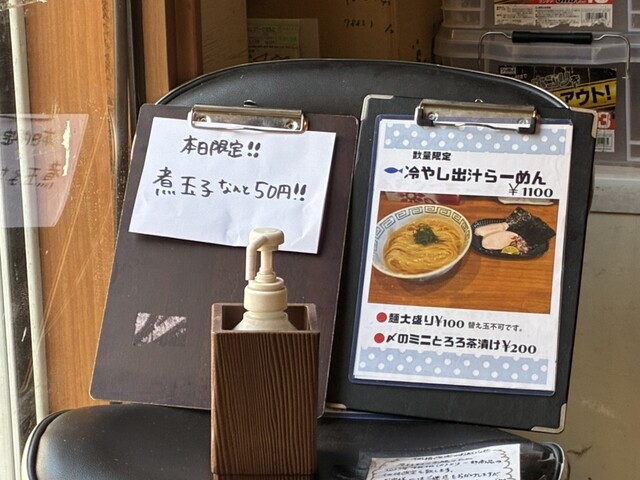 本日限定!!
煮玉子なんと50円!!
数量限定
冷やし出汁らーめん
¥1100
●麺大盛り¥100 替え玉不可です。
●〆のミニとろろ茶漬け¥200
アウト!